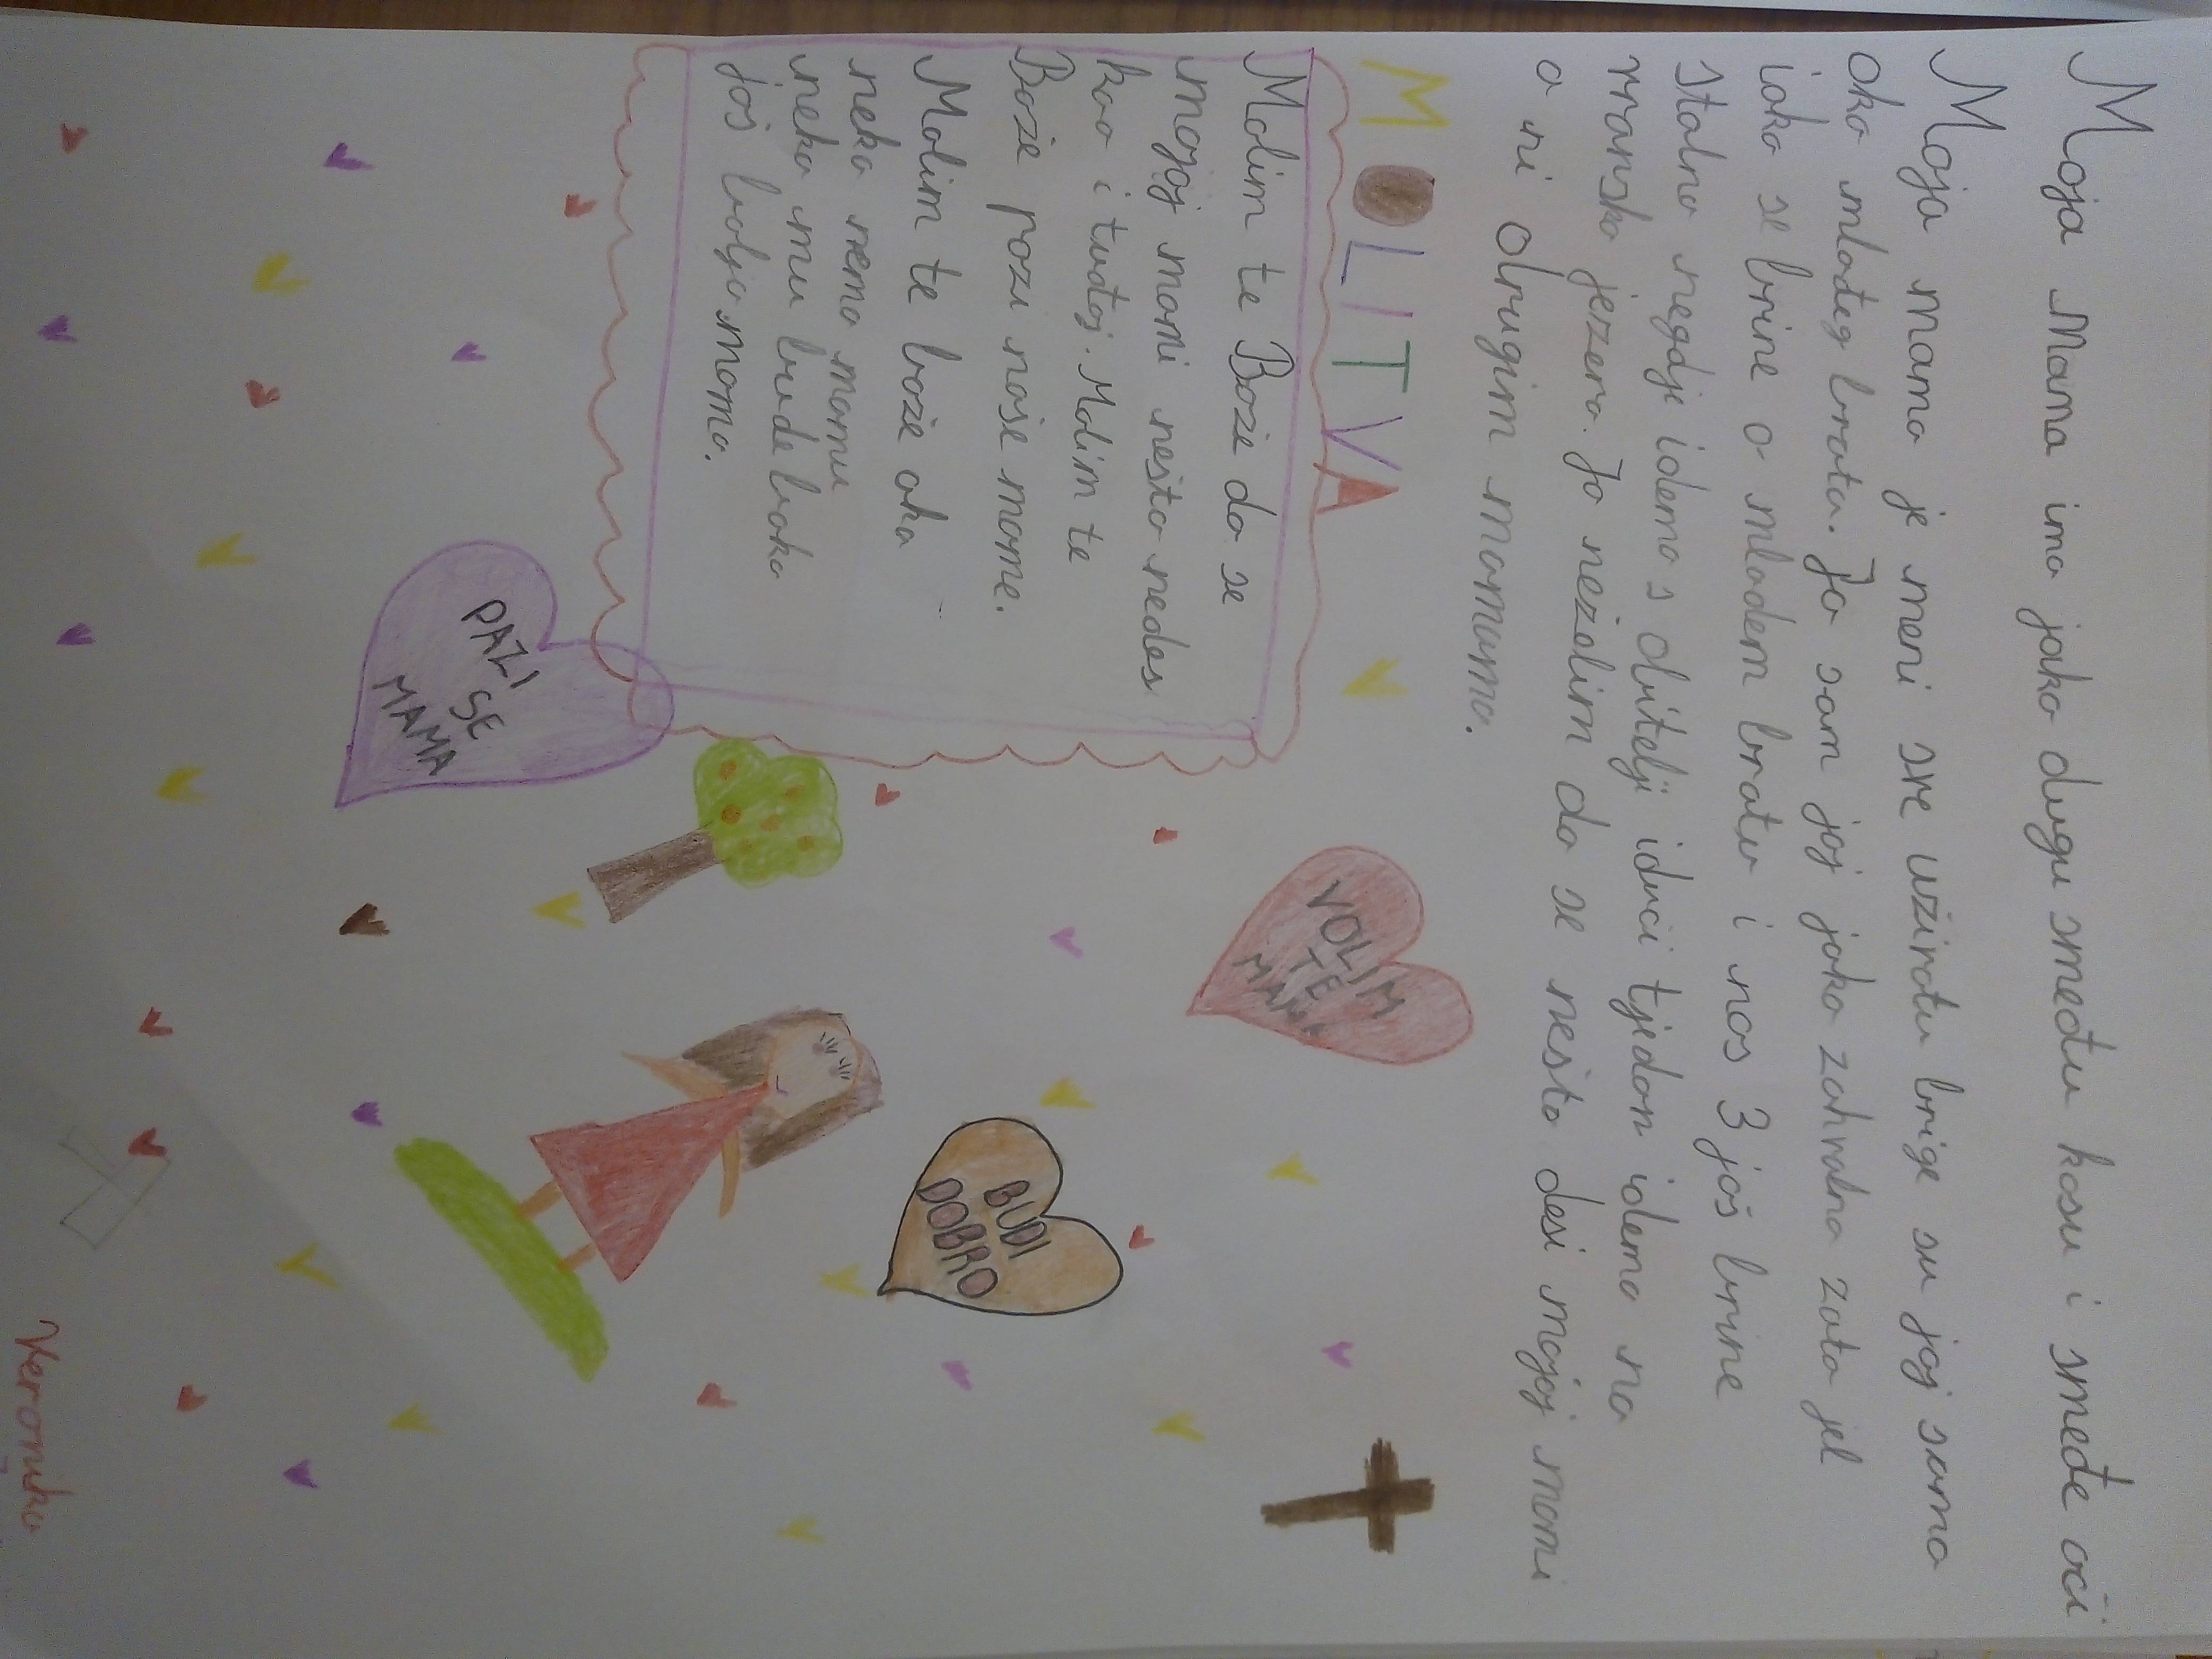 Moja Mama ima jako dugu smeđu kosu i smeđe oči
Moja mama je meni sve užiratu brige su joj samo
oko mlađeg bratu. Ja sam joj jako zahvalna zato jel
iako se brine o mlađem bratu i nas 3 još brine
stalno negdje idemo s obitelji idući tjedan idemo na
vransko jezero. Ja neželim da se nešto desi mojoj mami
a ni drugim mamama.
MOLITVA
Molim te Bože da se
mojoj mami nešto nedos
kao i tvojoj. Molim te
Bože pozi naše mame.
Molim te bože ako
neko nema mamu
neka mu bude baka
još bolja mama.
VOLIM
TE
MAMA
PAZI
SE
MAMA
BUDI
DOBRO
Veronika